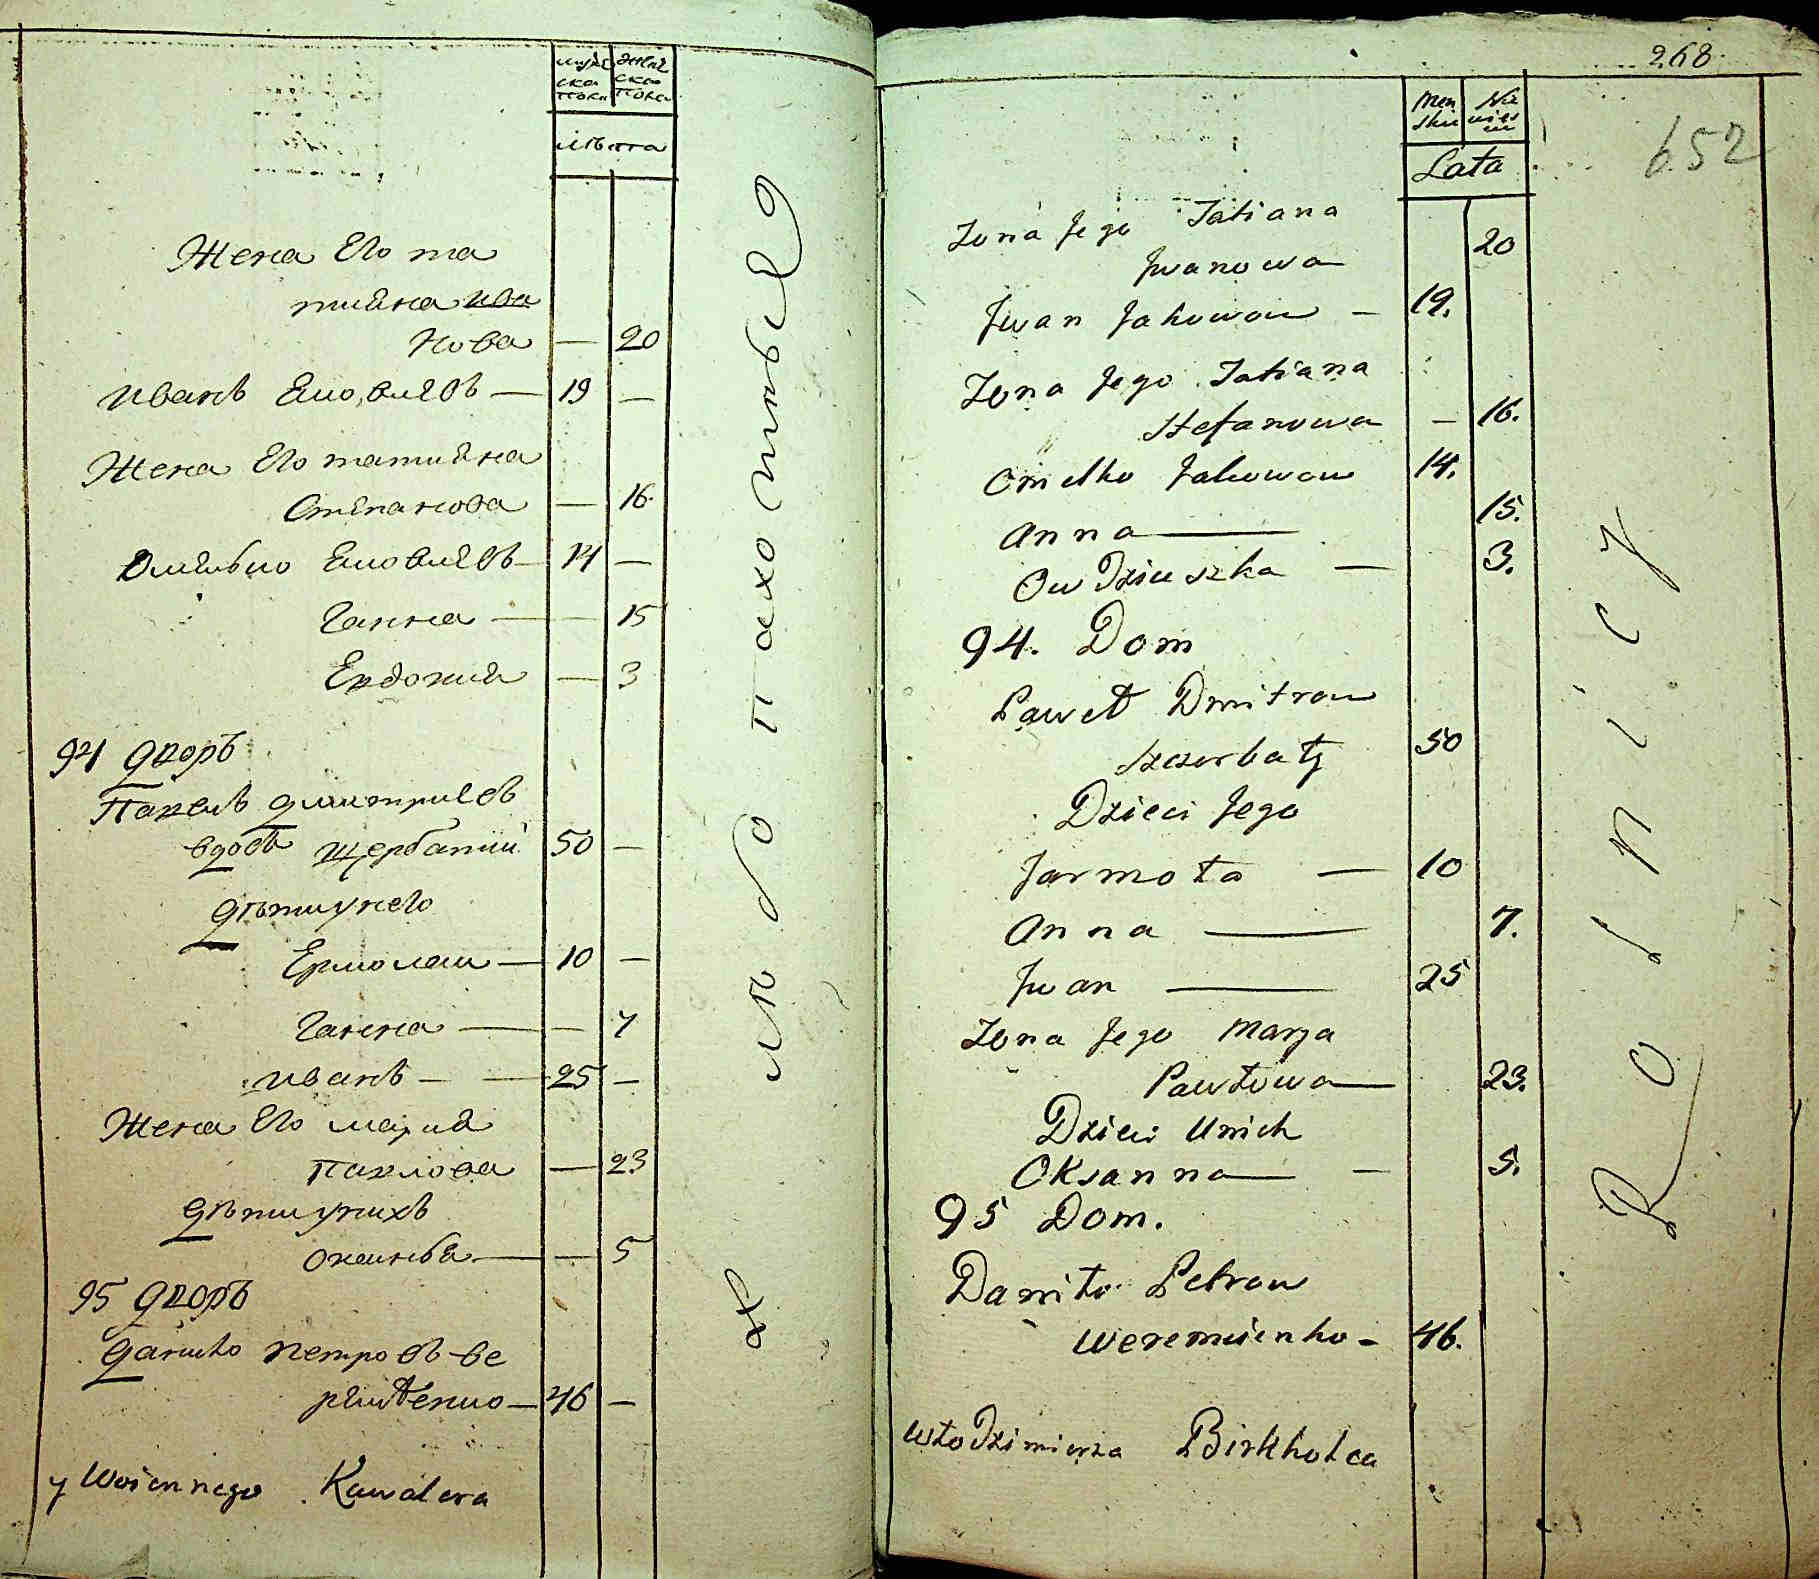 муже
ска
пола
женс
ска
пола
лѣта
Жена Его та
тияна Ива
нова — 20
Иванъ Яковлевъ — 19 —
Жена Его татияна
Степанова — 16.
Омелько Яковлевъ — 14 —
Ганна — — 15
Евдокия — 3
94 дворъ
Павелъ дмитриевъ
вдовъ щербатий 50 —
дѣти у него
Ермолай — 10 —
Ганна — — 7
Иванъ — — 25 —
Жена Его мария
Павлова — 23
дѣти у нихъ
оксинья — — 5
95 дворъ
данило петровъ ве
ремѣенко — 46 —
y Woiennego Kawalera
268.
652
Men
skie
Nie
wies
cie
Lata
Zona Jego Tatiana
Jwanowa 20
Jwan Jakowow — 19.
Zona Jego Tatiana
Stefanowa — 16.
Omelko Jakowow 14.
Anna — 15.
OwDziuszka — 3.
94. Dom
Paweł Dmitrow
Szczerbaty 50
Dzieci Jego
Jarmoła — 10
Anna — 7.
Jwan — 25
Zona Jego Marya
Pawłowa — 23.
Dzieci Unich
Oksanna — 5.
95 Dom.
Daniło Petrow
Weremiienko - 46.
WłoDzimierza Birkholca
Rolnicy